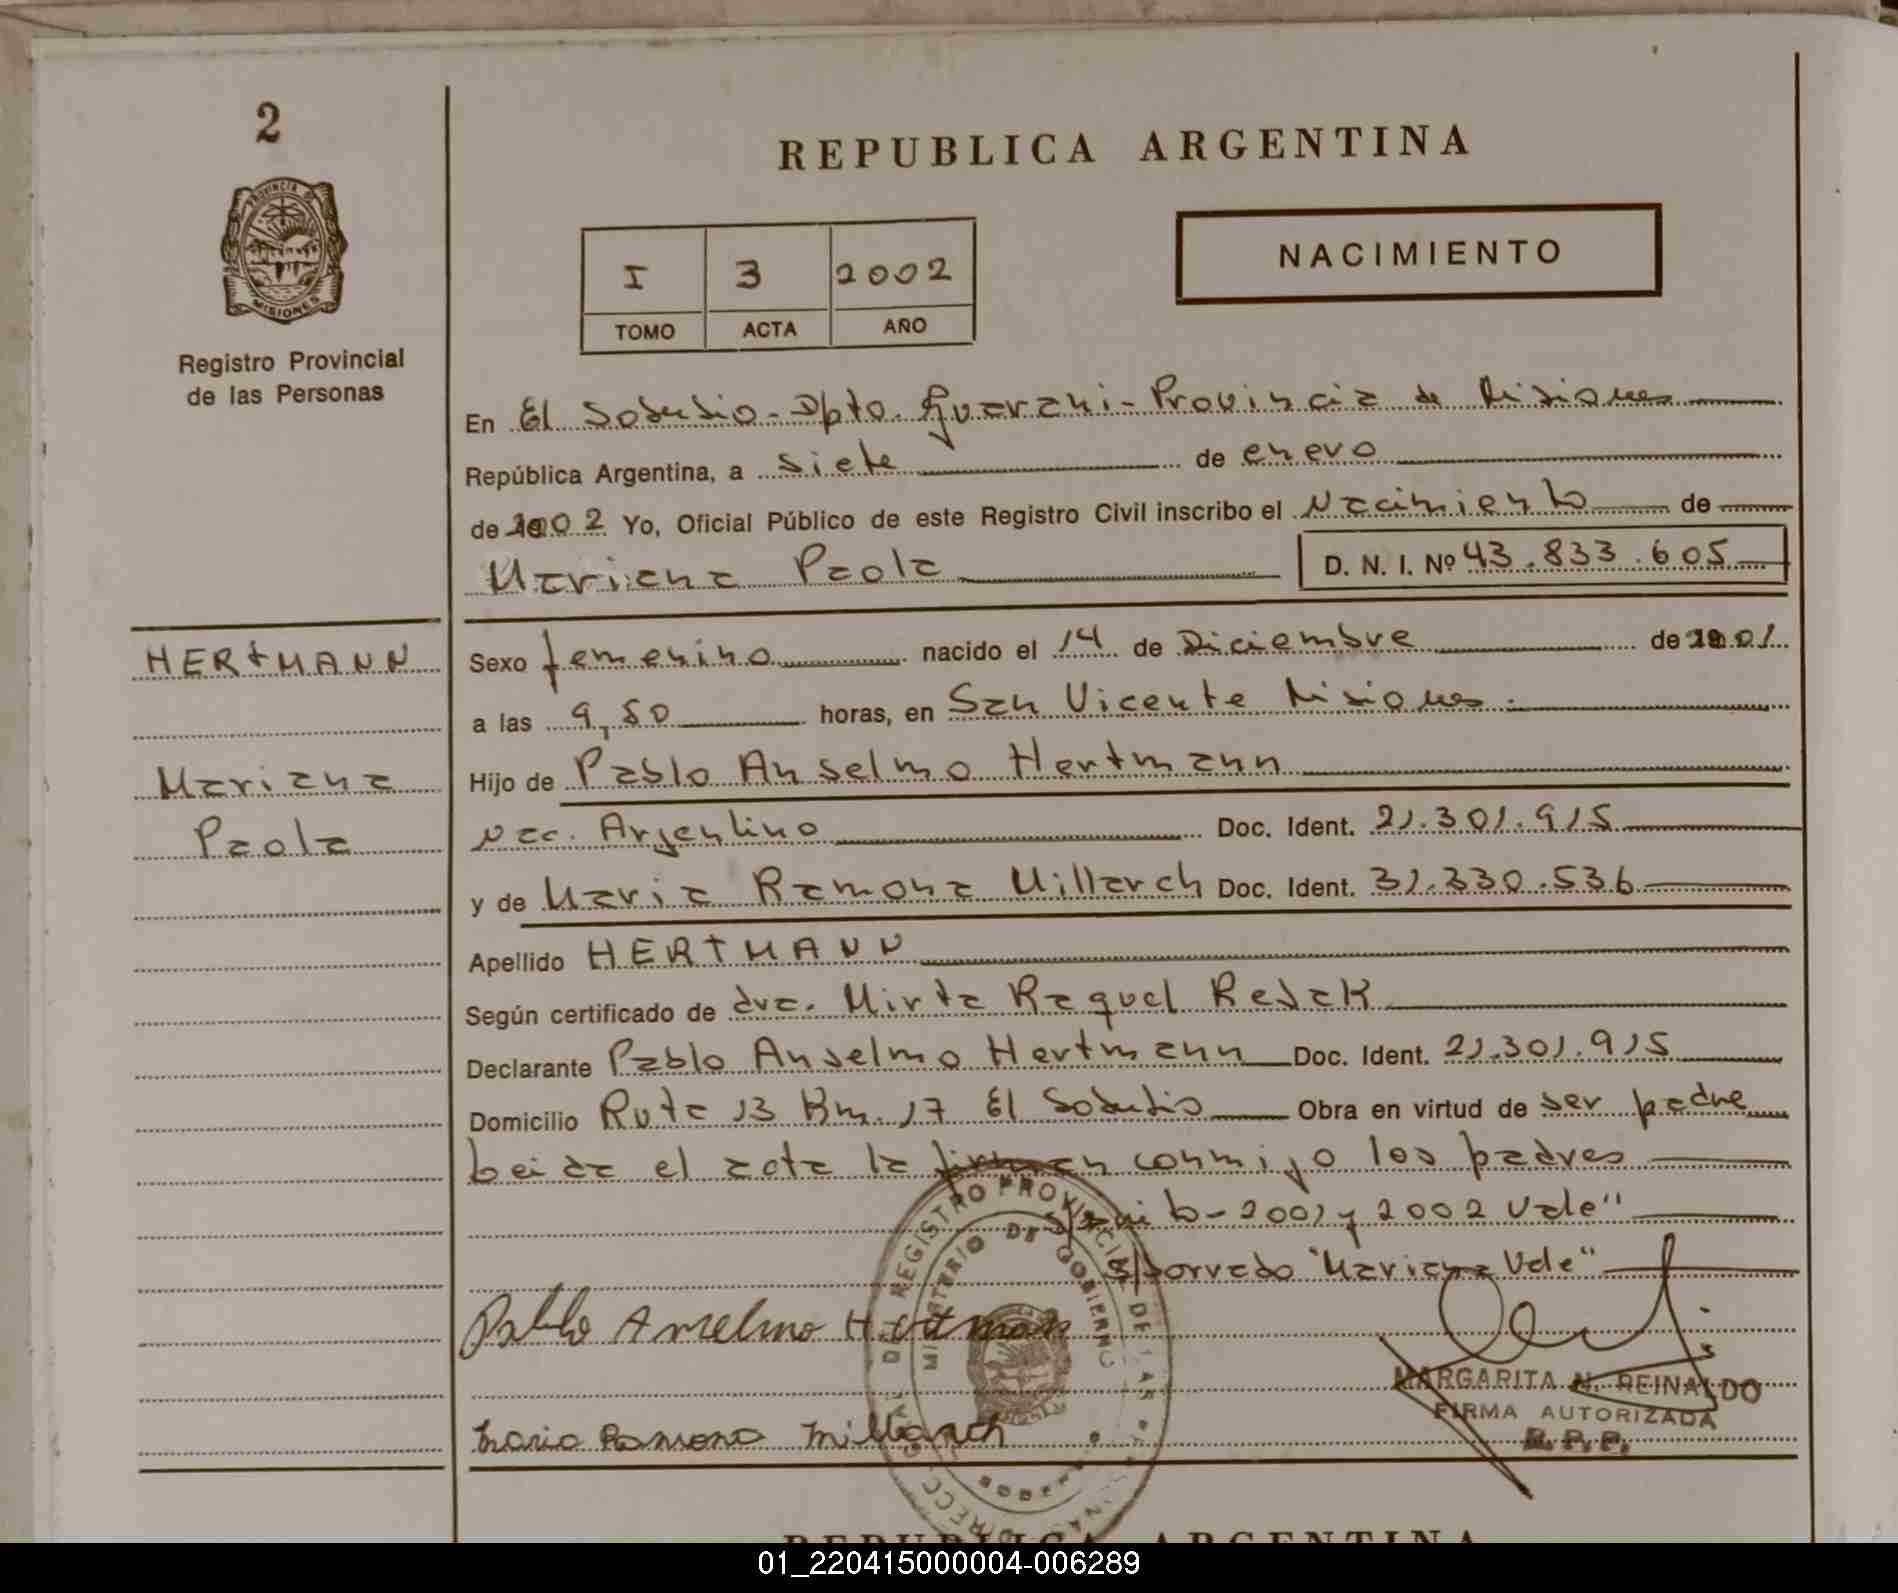 2
PROVINCIA DE
MISIONES
Registro Provincial
de las Personas
HERTMANN
Mariana
Paola
REPUBLICA ARGENTINA
I 3 2002
TOMO ACTA AÑO
NACIMIENTO
En El Soberbio - Dpto. Guarani - Provincia de Misiones
República Argentina, a siete de enero
de 2002 Yo, Oficial Público de este Registro Civil inscribo el Nacimiento de
Mariana Paola D. N. I. Nº 43.833.605
Sexo femenino nacido el 14 de Diciembre de 2001
a las 9,50 horas, en San Vicente Misiones.
Hijo de Pablo Anselmo Hertmann
Nac. Argentino Doc. Ident. 21.301.915
y de Maria Ramona Millarch Doc. Ident. 31.330.536
Apellido HERTMANN
Según certificado de dra. Mirta Raquel Resak
Declarante Pablo Anselmo Hertmann Doc. Ident. 21.301.915
Domicilio Ruta 13 Km. 17 El Soberbio Obra en virtud de ser padre
Leida el acta la firman conmigo los padres
2001 y 2002 Vale"
S/borrado "Mariana Vale"
Pablo Anselmo Hertmann
Maria Ramona Millarch
REGISTRO PROVINCIAL DE LAS
MINISTERIO DE GOBIERNO
MARGARITA N. REINALDO
FIRMA AUTORIZADA
R.P.P.
REPUBLICA ARGENTINA
01_220415000004-006289